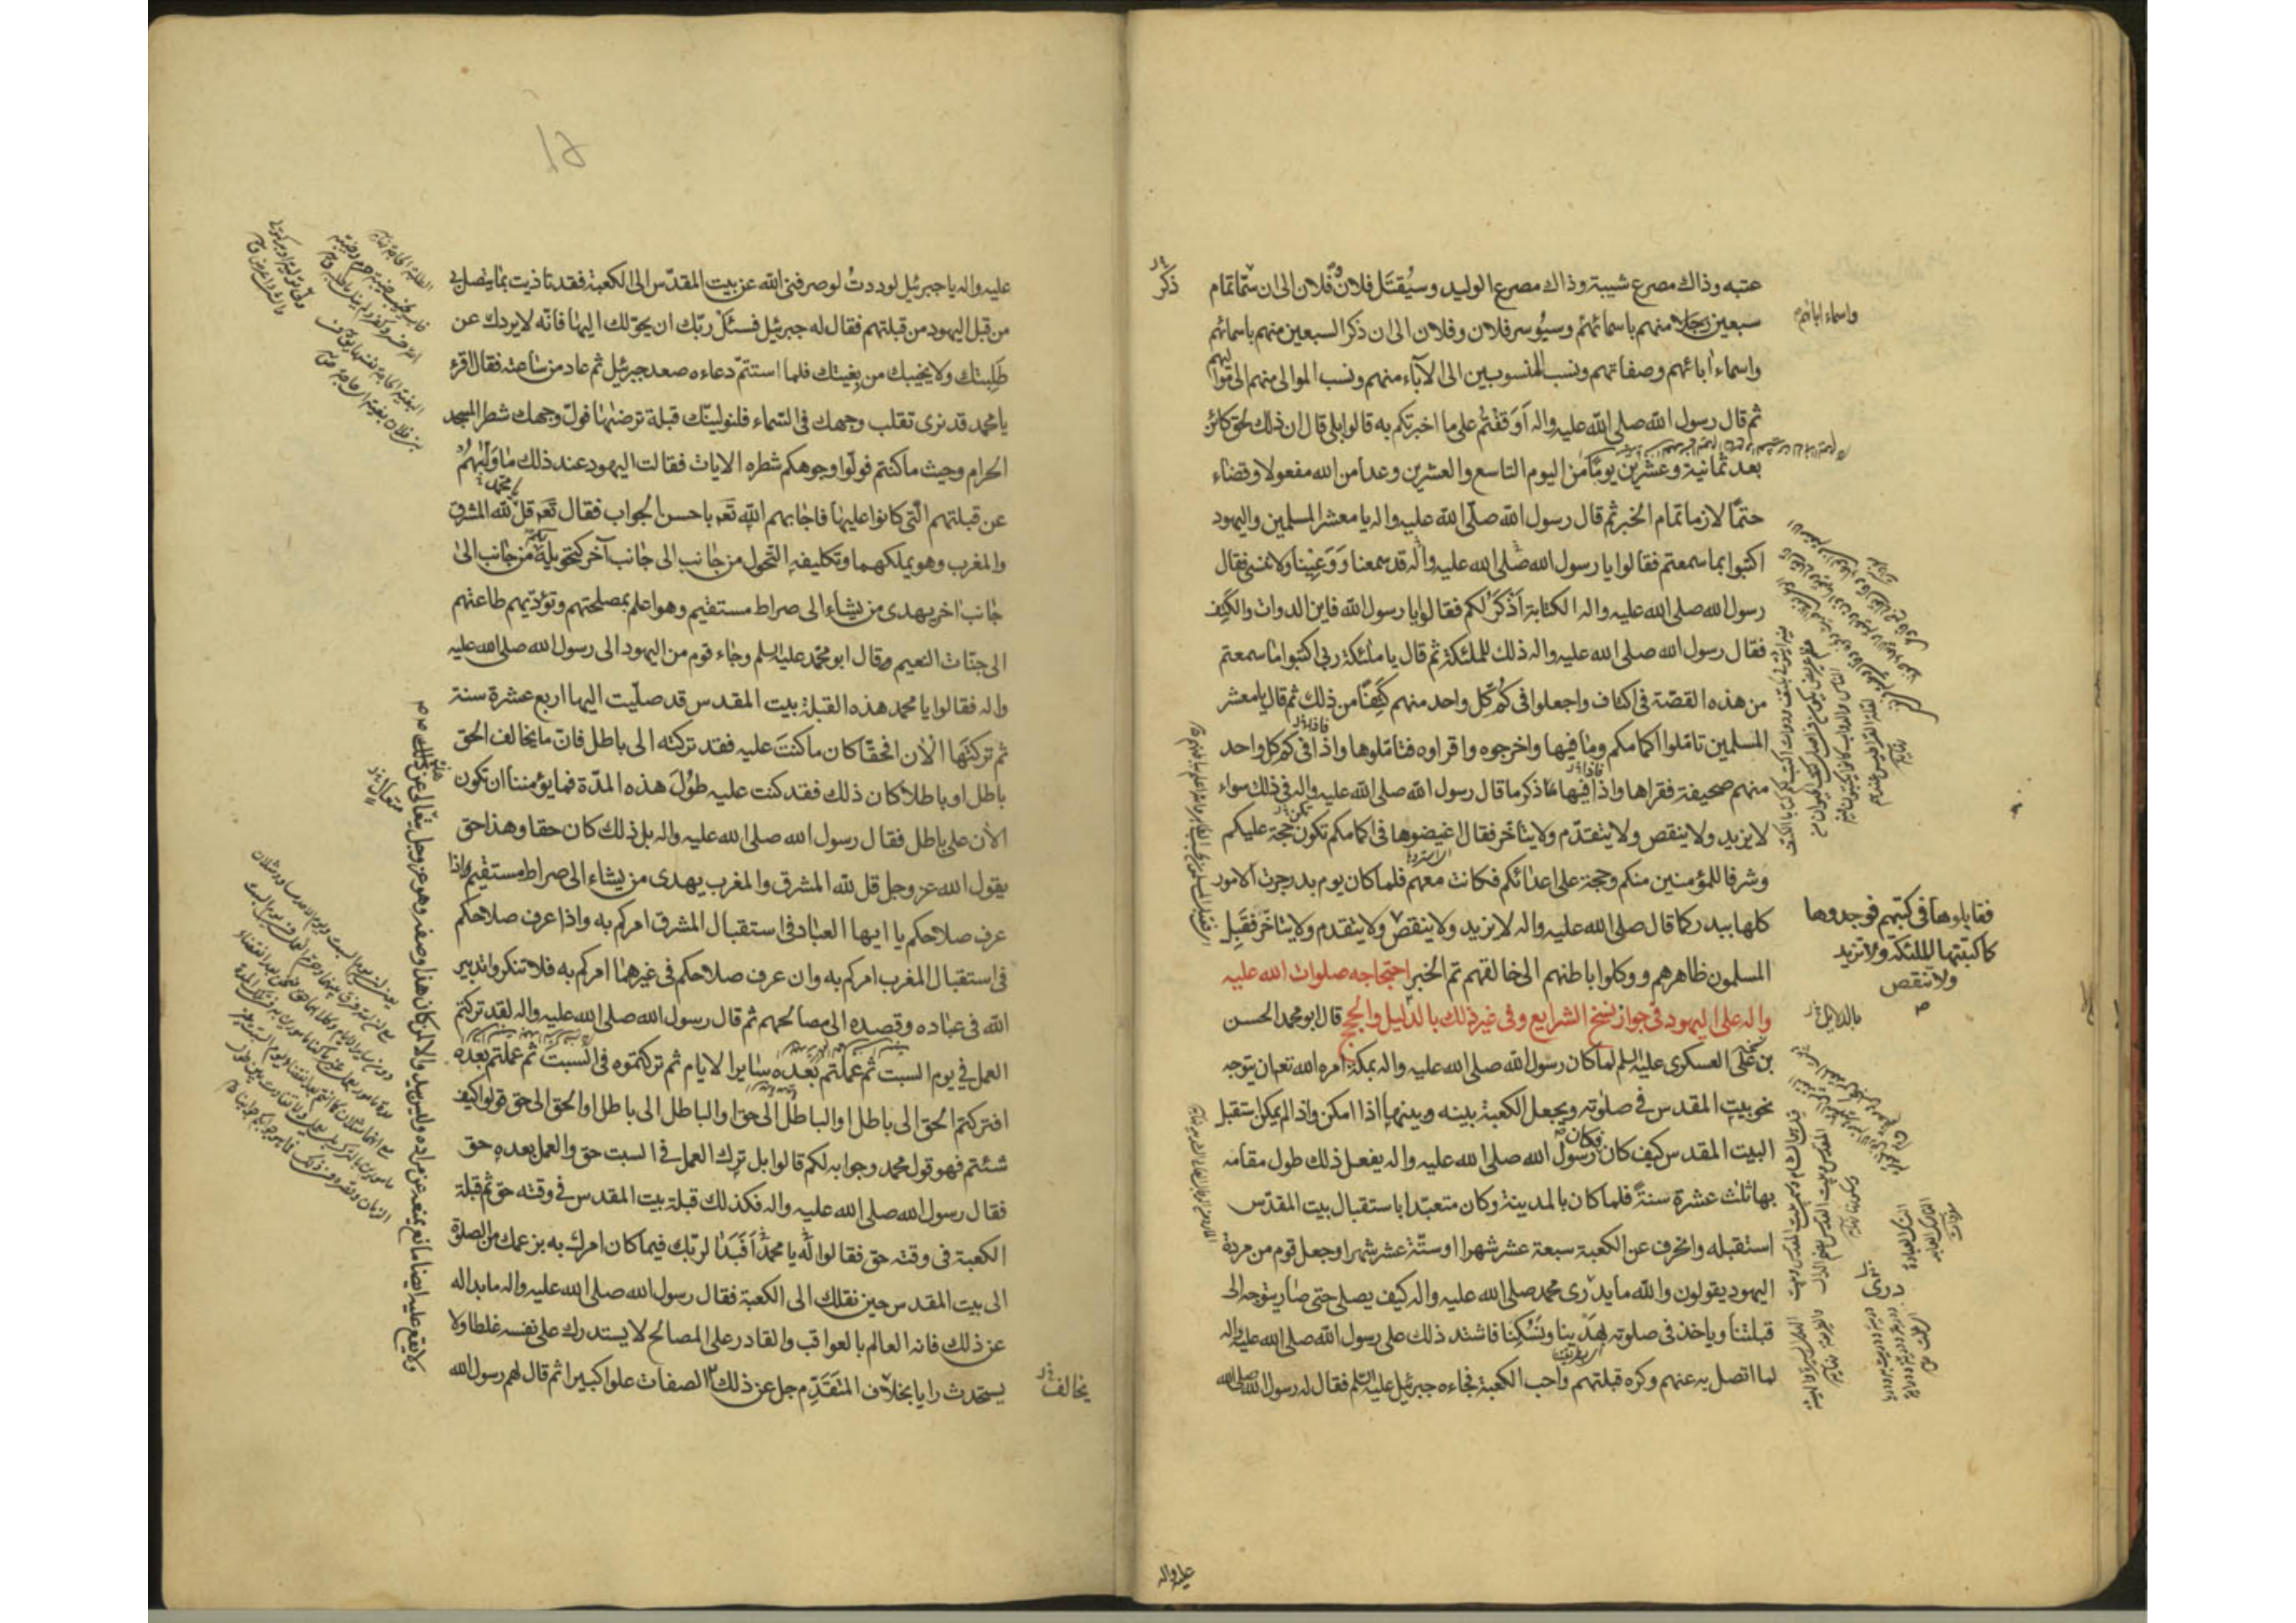 عتبه وذاك مصرع شيبة وذاك مصرع الوليد وسيُقتَل فلانٌ فلان الى ان ستما تمام
سبعين رجلا منهم باسمائهم وسيُوسر فلان وفلان الى ان ذكر السبعين منهم باسمائهم
واسماء ابائهم وصفاتهم ونسب المنسوبين الى الآباء منهم ونسب الموالى منهم الى مواليهم
ثم قال رسول الله صلى الله عليه واله اَوَقفتُم على ما اخبرتكم به قالوا بلى قال ان ذلك لحق كائن
بعد ثمانية وعشرين يومًا من اليوم التاسع والعشرين وعدا من الله مفعولا وقضاء
حتمًا لازما تمام الخبر ثم قال رسول الله صلّى الله عليه واله يا معشر المسلمين واليهود
اكتبوا بما سمعتم فقالوا يا رسول الله صلى الله عليه واله قد سمعنا وَوَعِيْنا ولا ننسى فقال
رسول الله صلى الله عليه واله الكتابة اَذكَرُ لكم فقالوا يا رسول الله فاين الدوات والكَتِف
فقال رسول الله صلى الله عليه واله ذلك للملئكة ثم قال يا ملئكة ربى اكتبوا ما سمعتم
من هذه القصّة فى اكتاف واجعلوا فى كُمّ كل واحد منهم كَتِفًا من ذلك ثم قال يا معشر
المسلمين تامّلوا اكمامكم وما فيها واخرجوه واقراوه فتامّلوها واذا فى كم كل واحد
منهم صحيفة فقراها واذا فيها ما ذكر ما قال رسول الله صلى الله عليه واله فى ذلك سواء
لا يزيد ولا ينقص ولا يتقدّم ولا يتاخّر فقال اغيضوها فى اكمامكم تكون حجة عليكم
وشرفا للمؤمنين منكم وحجة على اعدائكم فكانت معهم فلما كان يوم بدر جرت الامور
كلها ببدر كما قال صلى الله عليه واله لا يزيد ولا ينقص ولا يتقدم ولا يتاخّر فقَبِل
المسلمون ظاهرهم ووكلوا باطنهم الى خالقهم تم الخبر احتجاجه صلوات الله عليه
واله على اليهود فى جواز نسخ الشرايع وفى غير ذلك بالدّليل والحجج قال ابو محمد الحسن
بن على العسكرى عليه السلم لما كان رسول الله صلى الله عليه واله بمكة امره الله تع ان يتوجه
نحو بيت المقدس فى صلوته ويجعل الكعبة بينه وبينها اذا امكن واذا لم يمكن استقبل
البيت المقدس كيف كان فكان رسول الله صلى الله عليه واله يفعل ذلك طول مقامه
بها ثلث عشرة سنةً فلما كان بالمدينة وكان متعبّدا باستقبال بيت المقدّس
استقبله وانحرف عن الكعبة سبعة عشر شهرا اوستّة عشر شهرا وجعل قوم من مردة
اليهود يقولون والله ما يدرى محمد صلى الله عليه واله كيف يصلى حتى صار يتوجه الى
قبلتنا وياخذ فى صلوته بهَدْينا ونُسُكِنا فاشتد ذلك على رسول الله صلى الله عليه واله
لما اتصل به عنهم وكره قبلتهم واحب الكعبة فجاءه جبرئيل عليه السلم فقال له رسول الله صلى الله
عليه واله
ذكر
واسماء ابائهم
فقابلوها فى كتبهم فوجدوها
كما كتبتها الملئكة ولا تزيد
ولا تنقص
بالدلايل
عليه واله يا جبرئيل لوددتُ لو صرفنى الله عن بيت المقدّس الى الكعبة فقد تاذيت بما يتصل بى
من قبل اليهود من قبلتهم فقال له جبرئيل فسئل ربّك ان يحوّلك اليها فانّه لا يردك عن
طلبتك ولا يخيبك من بغيتك فلما استتمّ دعاءه صعد جبرئيل ثم عاد من ساعته فقال اقرء
يا محمد قد نرى تقلب وجهك فى السّماء فلنولينّك قبلة ترضيٰها فولّ وجهك شطر المسجد
الحرام وحيث ما كنتم فولّوا وجوهكم شطره الايات فقالت اليهود عند ذلك ما ولّيٰهُم
عن قبلتهم الّتى كانوا عليها فاجابهم الله تع باحسن الجواب فقال تع قل لله المشرق
والمغرب وهو يملكهما وتكليفه التحول من جانب الى جانب آخر كتحويله من جانب الى
جانب اخر يهدى من يشاء الى صراط مستقيم وهو اعلم بمصلحتهم وتؤدّيهم طاعتهم
الى جنات النعيم وقال ابو محمّد عليه السلم وجاء قوم من اليهود الى رسول الله صلى الله عليه
واله فقالوا يا محمد هذه القبلة بيت المقدس قد صلّيت اليها اربع عشرة سنة
ثم تركتَها الاٰن افحقّا كان ما كنتَ عليه فقد تركته الى باطل فانّ ما يخالف الحق
باطل او باطلا كان ذلك فقد كنت عليه طُولَ هذه المدّة فما يؤمننا ان تكون
الاٰن على باطل فقال رسول الله صلى الله عليه واله بل ذلك كان حقا وهذا حق
يقول الله عز وجل قل لله المشرق والمغرب يهدى من يشاء الى صراط مستقيم واذا
عرف صلاحكم يا ايها العباد فى استقبال المشرق امركم به واذا عرف صلاحكم
فى استقبال المغرب امركم به وان عرف صلاحكم فى غيرهما امركم به فلا تنكروا تدبير
الله فى عباده وقصده الى مصالحهم ثم قال رسول الله صلى الله عليه واله لقد تركتم
العمل فى يوم السبت ثم عملتم بعده سايرا لايام ثم تركتموه فى السبت ثم عملتم بعده
افتركتم الحق الى باطل او الباطل الى حق او الباطل الى باطل او الحق الى حق قولوا كيف
شئتم فهو قول محمد وجوابه لكم قالوا بل ترك العمل فى السبت حق والعمل بعده حق
فقال رسول الله صلى الله عليه واله فكذلك قبلة بيت المقدس فى وقته حق ثم قبلة
الكعبة فى وقته حق فقالوا له يا محمّد اَفَبَدا لربّك فيما كان امرك به بزعمك من الصلوة
الى بيت المقدس حين نقلك الى الكعبة فقال رسول الله صلى الله عليه واله ما بدا له
عن ذلك فانه العالم بالعواقب والقادر على المصالح لا يستدرك على نفسه غلطا ولا
يستحدث رايا بخلاف المتقدّم جل عن ذلك الصفات علوا كبيرا ثم قال لهم رسول الله
يخالف
ولا يقع عليه ايضا مانع يمنعه عن مراده وليس يبدو الا لمن كان هذا وصفه وهو عز وجل يتعالى عن